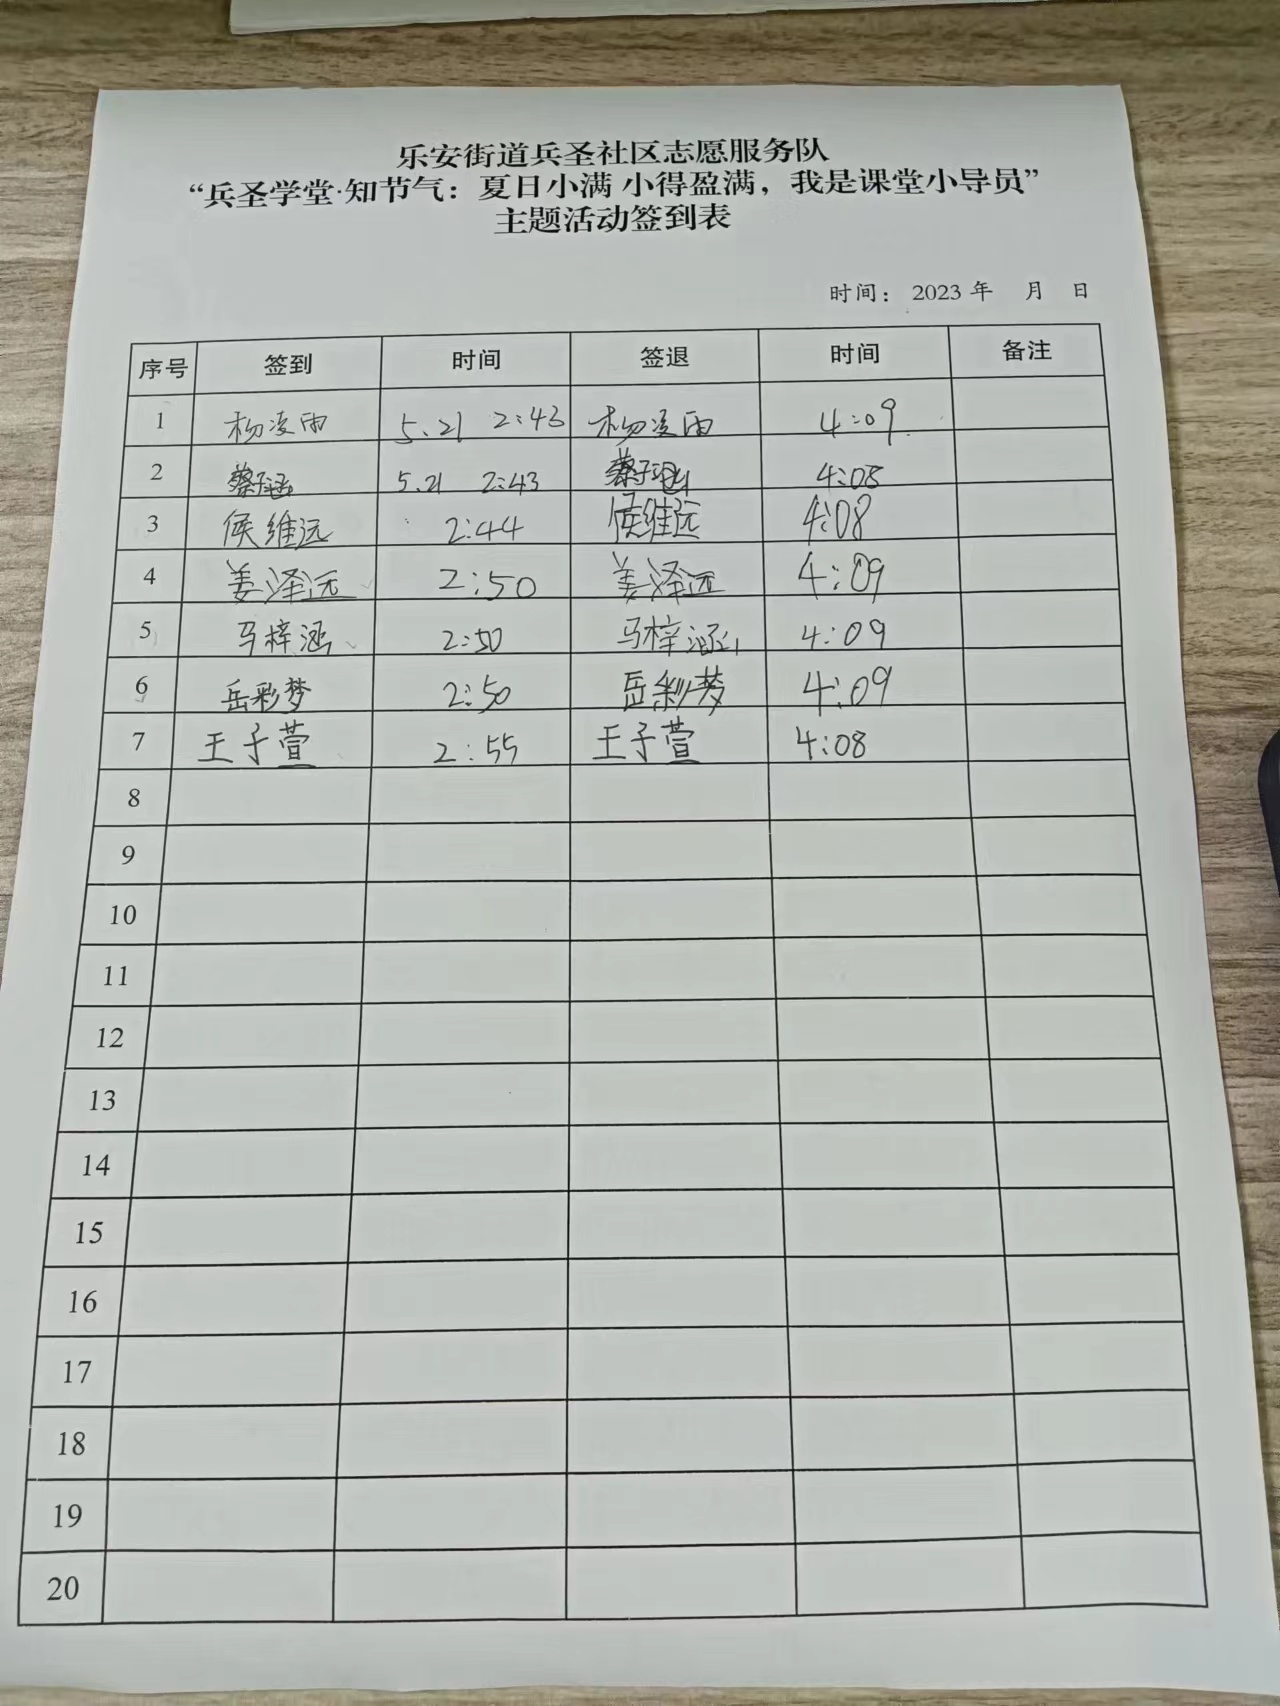 乐安街道兵圣社区志愿服务队
“兵圣学堂·知节气：夏日小满 小得盈满，我是课堂小导员”
主题活动签到表
时间： 2023 年 月 日
序号 签到 时间 签退 时间 备注
1 杨凌雨 5.21 2:43 杨凌雨 4:09
2 蔡子涵 5.21 2:43 蔡子涵 4:08
3 侯维远 2:44 侯维远 4:08
4 姜泽远 2:50 姜泽远 4:09
5 马梓涵 2:50 马梓涵 4:09
6 岳彩梦 2:50 岳彩梦 4:09
7 王子萱 2:55 王子萱 4:08
8
9
10
11
12
13
14
15
16
17
18
19
20